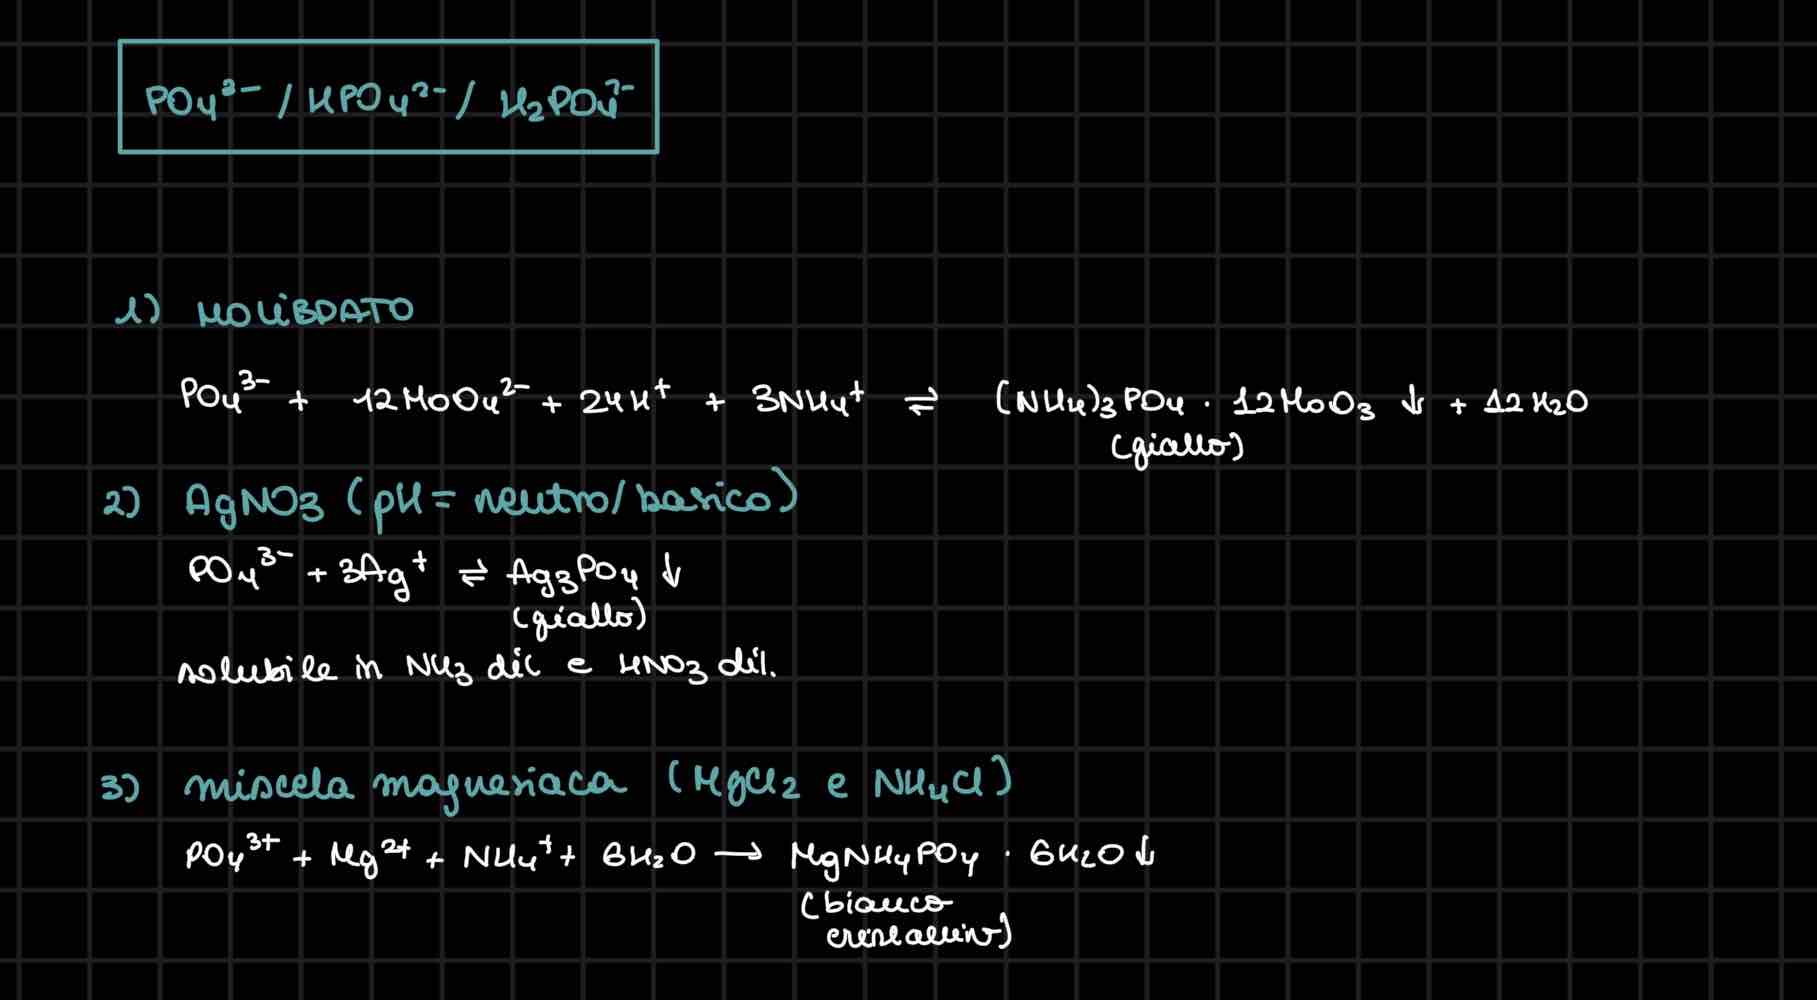 PO4³⁻ / HPO4²⁻ / H2PO4²⁻
1) MOLiBDATO
PO4³⁻ + 12MoO4²⁻ + 24H⁺ + 3NH4⁺ ⇌ (NH4)3PO4 · 12MoO3 ↓ + 12H2O
(giallo)
2) AgNO3 (pH = neutro/basico)
PO4³⁻ + 3Ag⁺ ⇌ Ag3PO4 ↓
(giallo)
solubile in NH3 dil e HNO3 dil.
3) miscela magnesiaca (MgCl2 e NH4Cl)
PO4³⁺ + Mg²⁺ + NH4⁺ + 6H2O → MgNH4PO4 · 6H2O ↓
(bianco
cristallino)